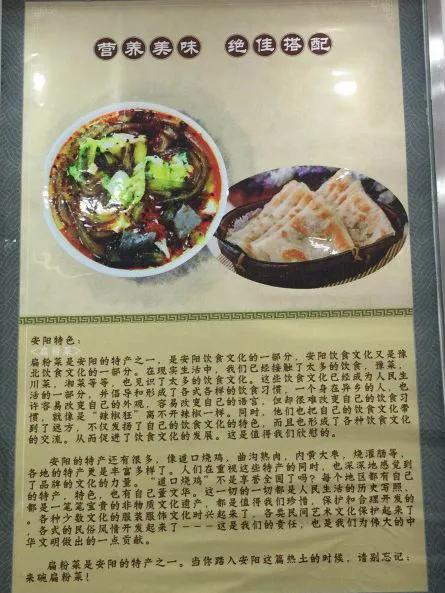 营养美味 绝佳搭配
安阳特色：
<扁粉菜>
扁粉菜是安阳的特产之一，是安阳饮食文化的一部分，安阳饮食文化又是豫
北饮食文化的一部分。在现实生活中，我们已经接触了太多的饮食，豫菜，
川菜，湘菜等等，也见识了太多的饮食文化。这些饮食文化已经成为人民生
活的一部分，并倡导和形成了各式各样的饮食习惯，一个身在异乡的人，也
许容易改变自己的外观，容易改变自己的语言，但却很难改变自己的饮食习
惯，就像是“辣椒狂”离不开辣椒一样。同时，他们也把自己的饮食文化带
到了远方，不仅发扬了自己的饮食文化的特色，而且也形成了各种饮食文化
的交流。从而促进了饮食文化的发展。这是值得我们欣慰的。
安阳的特产还有很多，像道口烧鸡，曲沟熟肉，内黄大枣，烧灌肠等，
各地的特产更是丰富多样了。人们在重视这些特产的同时，也深深地感觉到
了品牌的文化的力量。“道口烧鸡”不是享誉全国了吗？每个地区都有自己
的特产，特色，也有自己董文华。这一切的一切都是人民生活的历史写照，
都是一笔笔宝贵的非物质文化遗产，都是值得我们珍惜，保护和合理开发的
。各种少数文化的服装服饰文化时兴起来了，各类民间艺术文化保护起来了
，各式的民俗风情开发起来了－－－这是我们的责任，也是我们为伟大的中
华文明做出的一点贡献。
扁粉菜是安阳的特产之一。当你踏入安阳这篇热土的时候，请别忘记：
来碗扁粉菜！